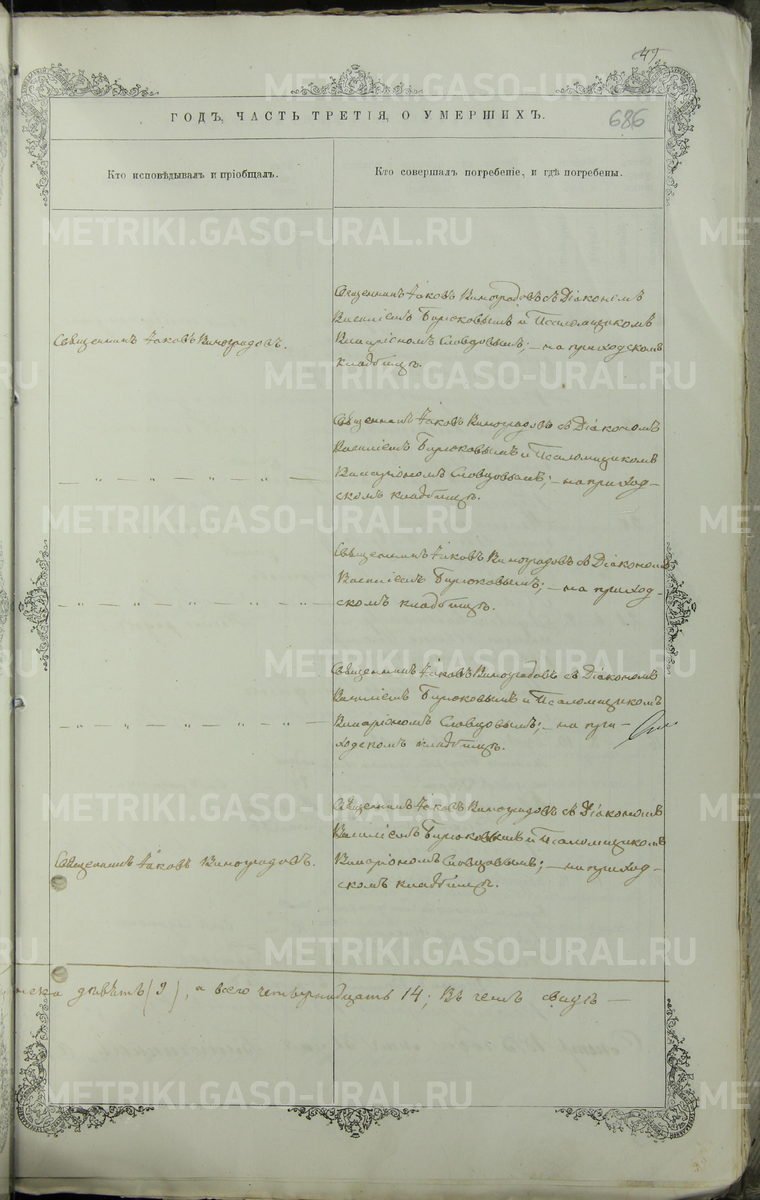 49
686
ГОДЪ, ЧАСТЬ ТРЕТІЯ, О УМЕРШИХЪ.
Кто исповѣдывалъ и пріобщалъ.
Кто совершалъ погребеніе, и гдѣ погребены.
Священникъ Іаковъ Виноградовъ.
Священникъ Іаковъ Виноградовъ съ Діакономъ
Василіемъ Бирюковымъ и Псаломщикомъ
Иларіономъ Словцовымъ; – на приходскомъ
кладбищѣ.
— „ — „ — „ — „ —
Священникъ Іаковъ Виноградовъ съ Діакономъ
Василіемъ Бирюковымъ и Псаломщикомъ
Иларіономъ Словцовымъ; – на приход-
скомъ кладбищѣ.
— „ — „ — „ — „ —
Священникъ Іаковъ Виноградовъ съ Діакономъ
Василіемъ Бирюковымъ; – на приход-
скомъ кладбищѣ.
— „ — „ — „ — „ —
Священникъ Іаковъ Виноградовъ съ Діакономъ
Василіемъ Бирюковымъ и Псаломщикомъ
Иларіономъ Словцовымъ; – на при-
ходскомъ кладбищѣ.
Священникъ Іаковъ Виноградовъ.
Священникъ Іаковъ Виноградовъ съ Діакономъ
Василіемъ Бирюковымъ и Псаломщикомъ
Иларіономъ Словцовымъ; – на приход-
скомъ кладбищѣ.
девять (9), а всего четырнадцать 14; Въ чемъ свидѣ —
METRIKI.GASO-URAL.RU